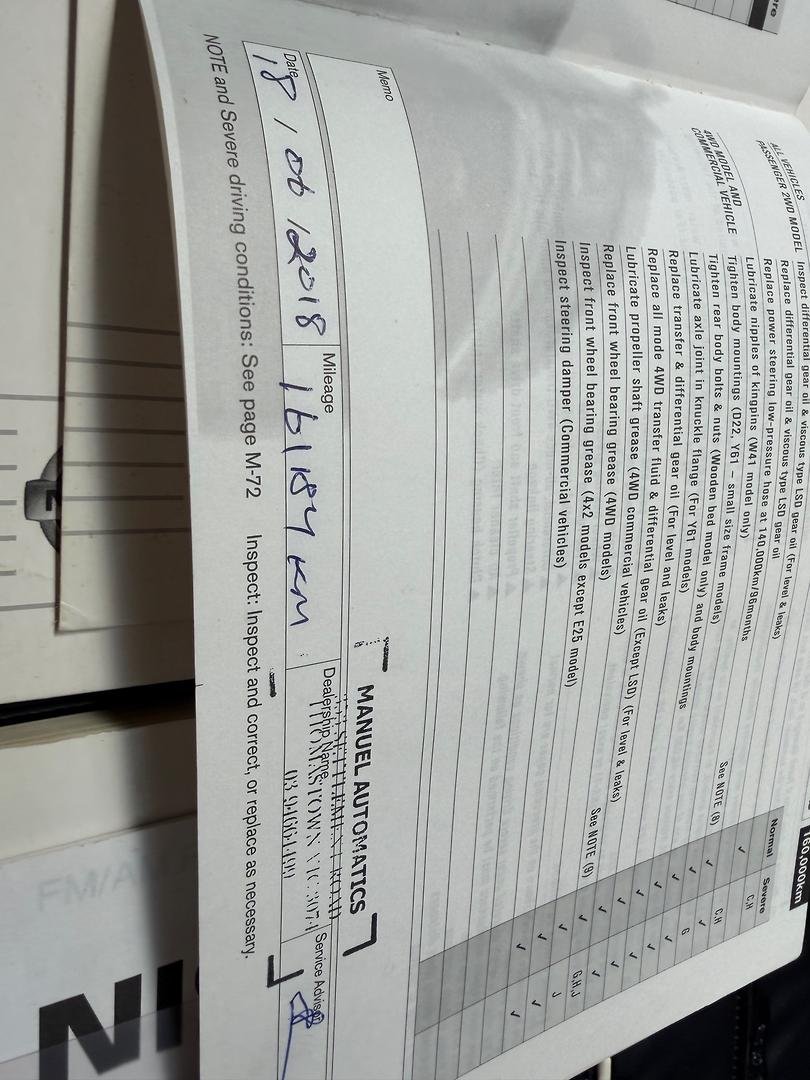 160,000km
Normal Severe
ALL VEHICLES
PASSENGER 2WD MODEL
Inspect differential gear oil & viscous type LSD gear oil (For level & leaks)
Replace differential gear oil & viscous type LSD gear oil
Replace power steering low-pressure hose at 140,000km/96months
4WD MODEL AND
COMMERCIAL VEHICLE
Lubricate nipples of kingpins (W41 model only)
Tighten body mountings (D22, Y61 – small size frame models) See NOTE (8)
Tighten rear body bolts & nuts (Wooden bed model only)
Lubricate axle joint in knuckle flange (For Y61 models) and body mountings
Replace transfer & differential gear oil (For level and leaks)
Replace all mode 4WD transfer fluid & differential gear oil (Except LSD) (For level & leaks)
Lubricate propeller shaft grease (4WD commercial vehicles)
Replace front wheel bearing grease (4WD models)
Inspect front wheel bearing grease (4x2 models except E25 model) See NOTE (9)
Inspect steering damper (Commercial vehicles)
✓ C,H
✓ C,H
✓ ✓
✓ G
✓ ✓
✓ ✓
✓ ✓
✓ ✓
✓ G,H,J
✓ J
✓ ✓
✓ ✓
Memo
MANUEL AUTOMATICS
Date Mileage Dealership Name Service Advisor
18 / 06 / 2018 161184 KM
THOMASTOWN VIC 3074
NOTE and Severe driving conditions: See page M-72 Inspect: Inspect and correct, or replace as necessary.
FM/A
NI